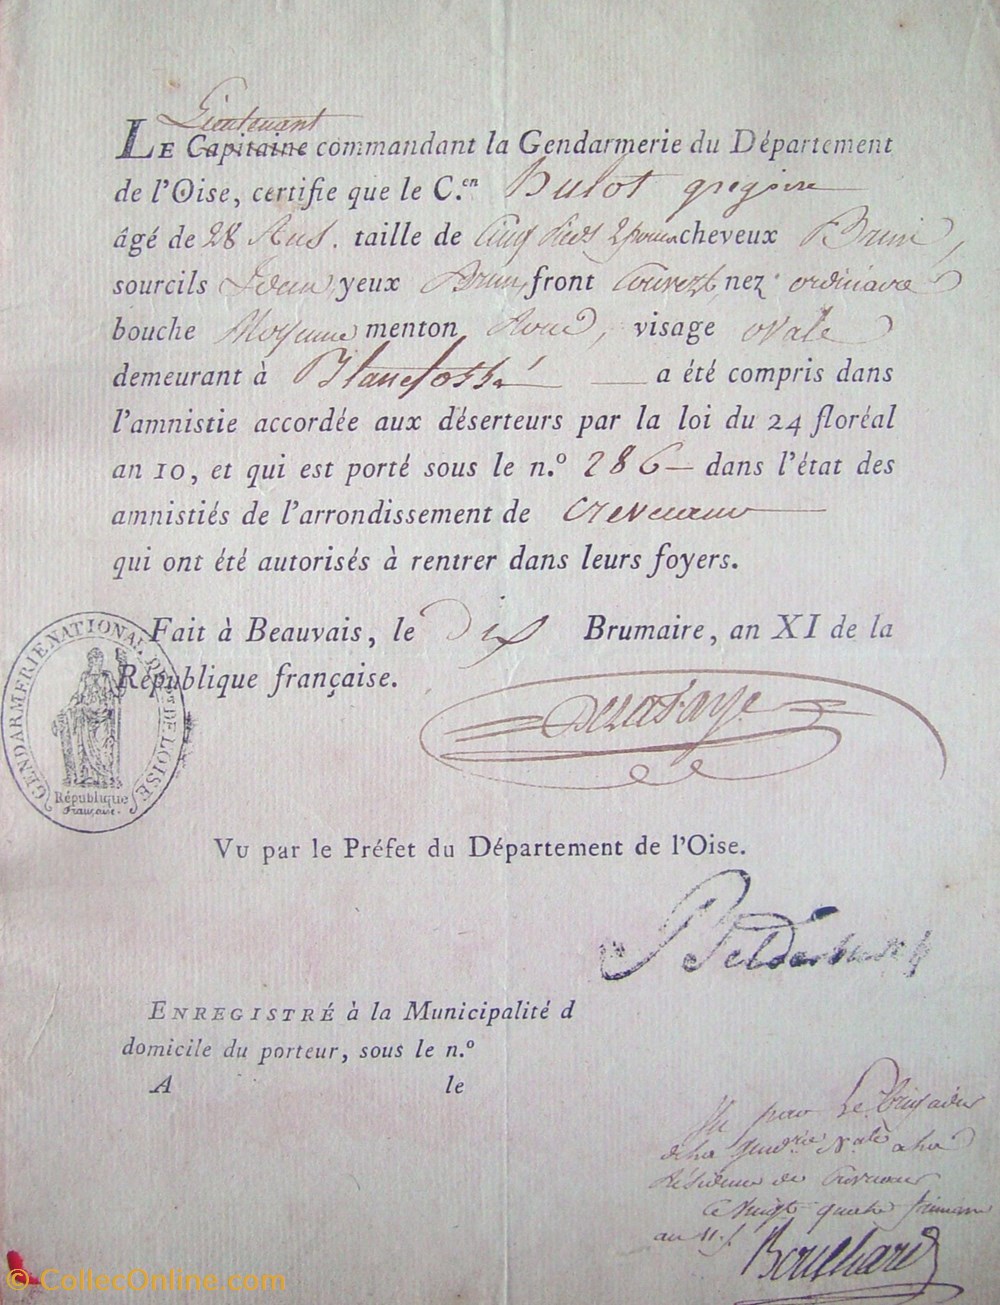 Lieutenant
LE Capitaine commandant la Gendarmerie du Département
de l'Oise, certifie que le C.en Bulot gregoire
âgé de 28 Ans. taille de Cinq pieds 2 pouces cheveux Brun,
sourcils Idem, yeux Brun, front Couvert, nez ordinaire
bouche Moyenne menton Rond, visage ovale
demeurant à Blancfossé a été compris dans
l'amnistie accordée aux déserteurs par la loi du 24 floréal
an 10, et qui est porté sous le n.º 286 dans l'état des
amnistiés de l'arrondissement de Crevecoeur
qui ont été autorisés à rentrer dans leurs foyers.
Fait à Beauvais, le dix Brumaire, an XI de la
République française.
GENDARMERIE NATIONALE DE L'OISE
République
Française.
Delafaye
Vu par le Préfet du Département de l'Oise.
Belderbusch
ENREGISTRÉ à la Municipalité d
domicile du porteur, sous le n.º
A le
Vu par Le Brigadier
de la gend.rie N.ale a la
Résidence de Crevecoeur
Ce vingt quatre frimaire
an 11.
Bouchard
© CollecOnline.com